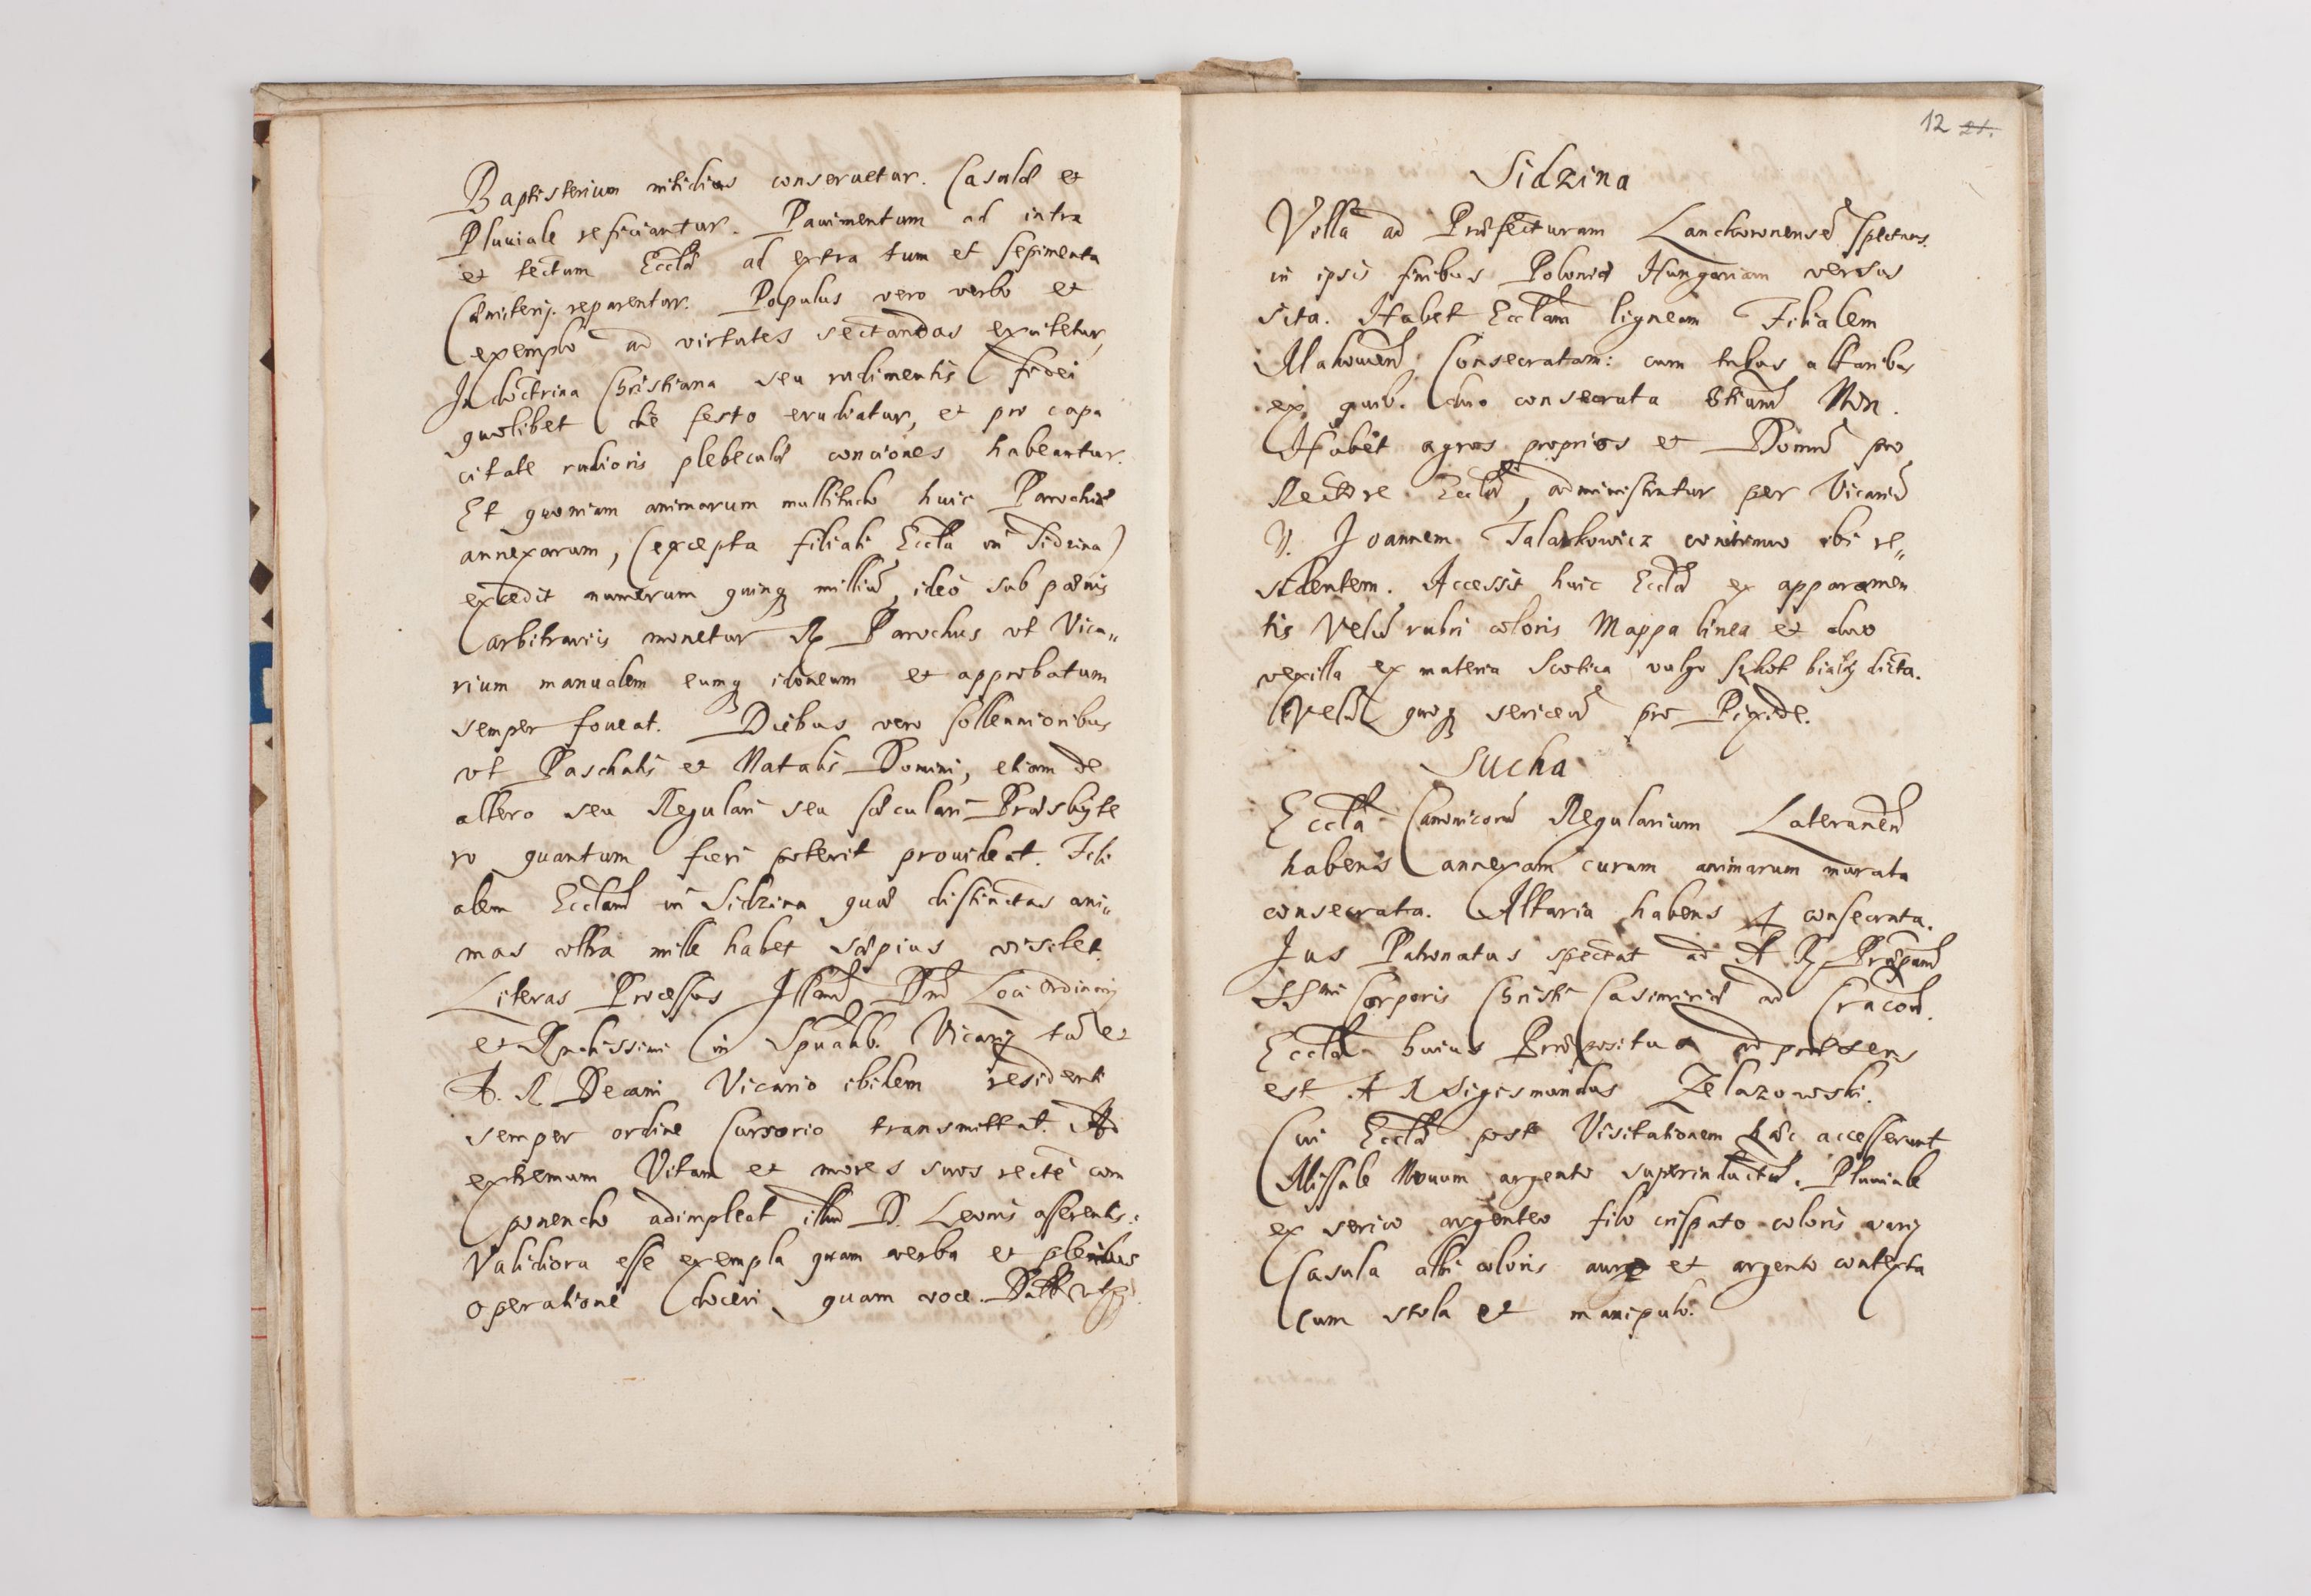 Baptisterium nitidius conseruetur. Casulæ et
Pluuiale reficiantur. Pauimentum ad intra
et tectum Eccłæ ad extra tum et sepimenta
Cæmiterij reparentur. Populus vero verbo et
exemplo ad virtutes sectandas excitetur,
In doctrina Christiana seu rudimentis fidei
quolibet die festo erudiatur, et pro capa
citate rudioris plebeculæ conciones habeantur.
Et quoniam animarum multitudo huic Parochiæ
annexarum, (excepta filiali Eccła in Sidzina)
excedit numerum quinq milliũ, ideo sub pœnis
arbitrariis monetur R Parochus vt Vica„
rium manualem eumq idoneum et approbatum
semper foueat. Diebus vero sollennioribus
vt Paschalis et Natalis Domini, etiam de
altero seu Regulari seu sæculari Præsbyte
ro quantum fieri poterit prouideat. Fili
alem Eccłam in Sidzina quæ distinctas ani„
mas vltra mille habet sæpius visitet.
Literas Processus Illmi Dni Loci Ordinarij
et Rndissimi in Spũalib. Vicarij tũ et
A. R Decani Vicario ibidem residenti
semper ordine Cursorio transmittat. Ad
extremum Vitam et mores suos recte com
ponendo adimpleat illud D. Leonis asserentis:
Validiora esse exempla quam verba et plenius
operatione doceri quam voce. Datt vt
12 21.
Sidzina
Villa ad Præfecturam Lanckoronensẽ spectans.
in ipsis finibus Poloniæ Hungariam versus
sita. Habet Eccłam ligneam Filialem
Makouien̄ Consecratam: cum tribus altaribus
ex quib. duo consecrata tertium Non.
Habet agros proprios et Domũ pro
Rectore Eccłæ, administratur per Vicariũ
V. Joannem Talarkowicz continuo ibi re„
sidentem. Accessit huic Eccłæ ex apparamen
tis Velũ rubri coloris Mappa linea et duo
vexilla ex materia Scotica vulgo szkot biały dicta.
Velũ quoq sericeũ pro Pixide.
Sucha
Eccła Canonicorũ Regularium Lateranen̄
habens annexam curam animarum murata
consecrata. Altaria habens 4 consecrata.
Jus Patronatus spectat ad A R Præpũm
SSmi Corporis Christi Casimiriæ ad Cracoũ.
Eccłæ huius Præpositus ad præsens
est A R Sigismundus Zelazowski.
Cui Eccłæ post Visitationem hãc accesserunt
Missale Nouum argento superinductũ. Pluuiale
ex serico argenteo filo crispato coloris varij
Casula albi coloris auro et argento contexta
cum stola et manipulo.